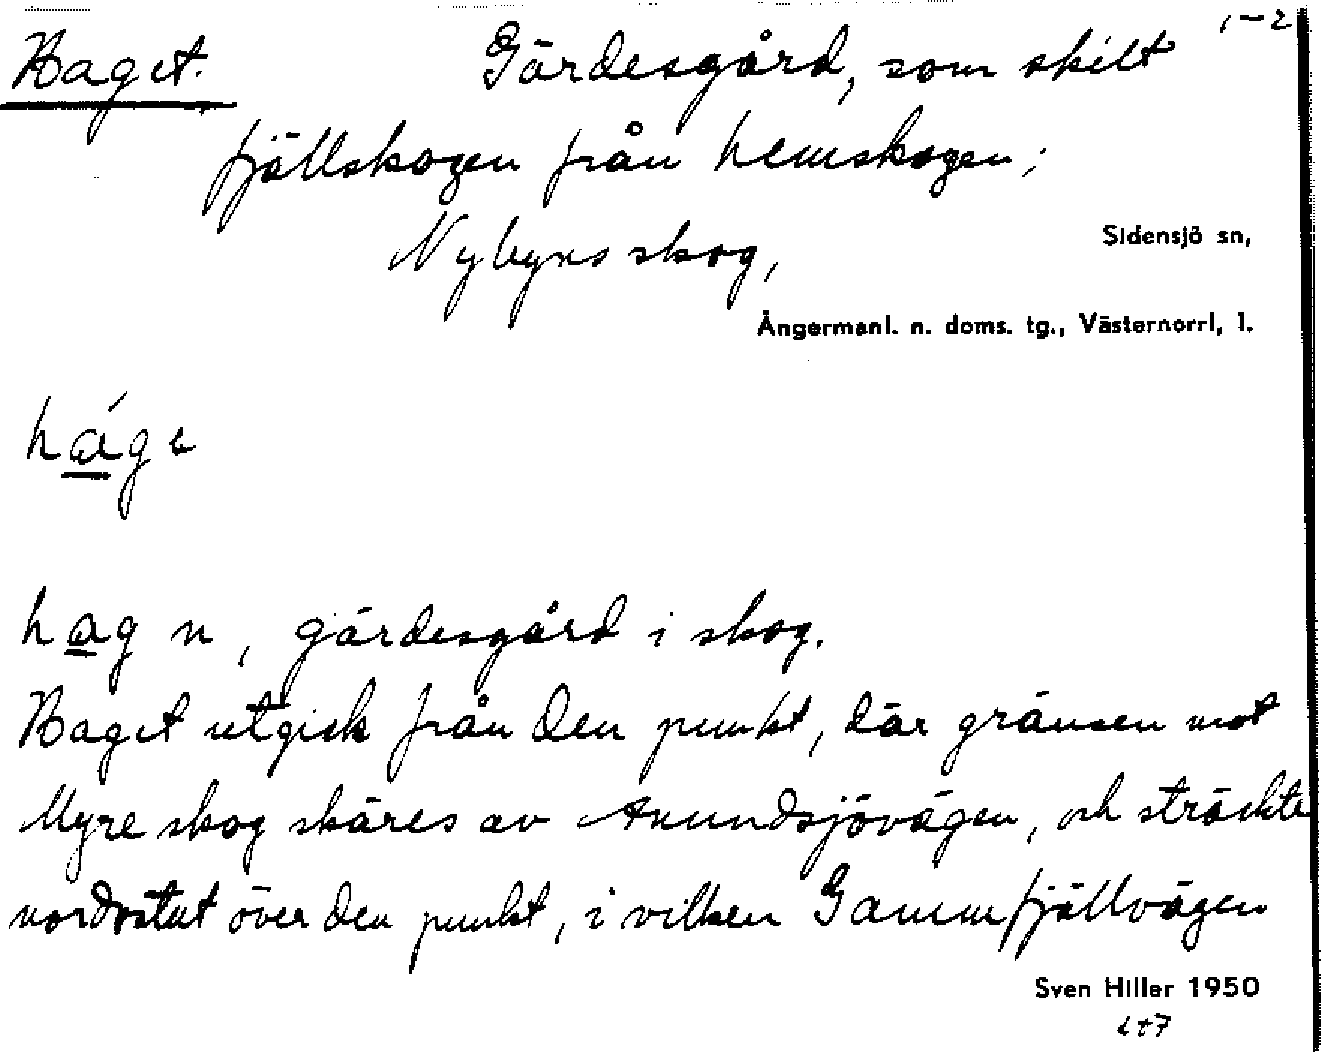 Haget. Gärdesgård, som skilt 1-2
fjällskogen från hemskogen;
Nybyns skog,
Sidensjö sn,
Ångermanl. n. doms. tg., Västernorrl, l.
háge
hag n, gärdesgård i skog.
Haget utgick från den punkt, där gränsen mot
Myre skog skäres av Anundsjövägen, och sträckte
nordostut över den punkt, i vilken Gammfjällvägen
Sven Hiller 1950